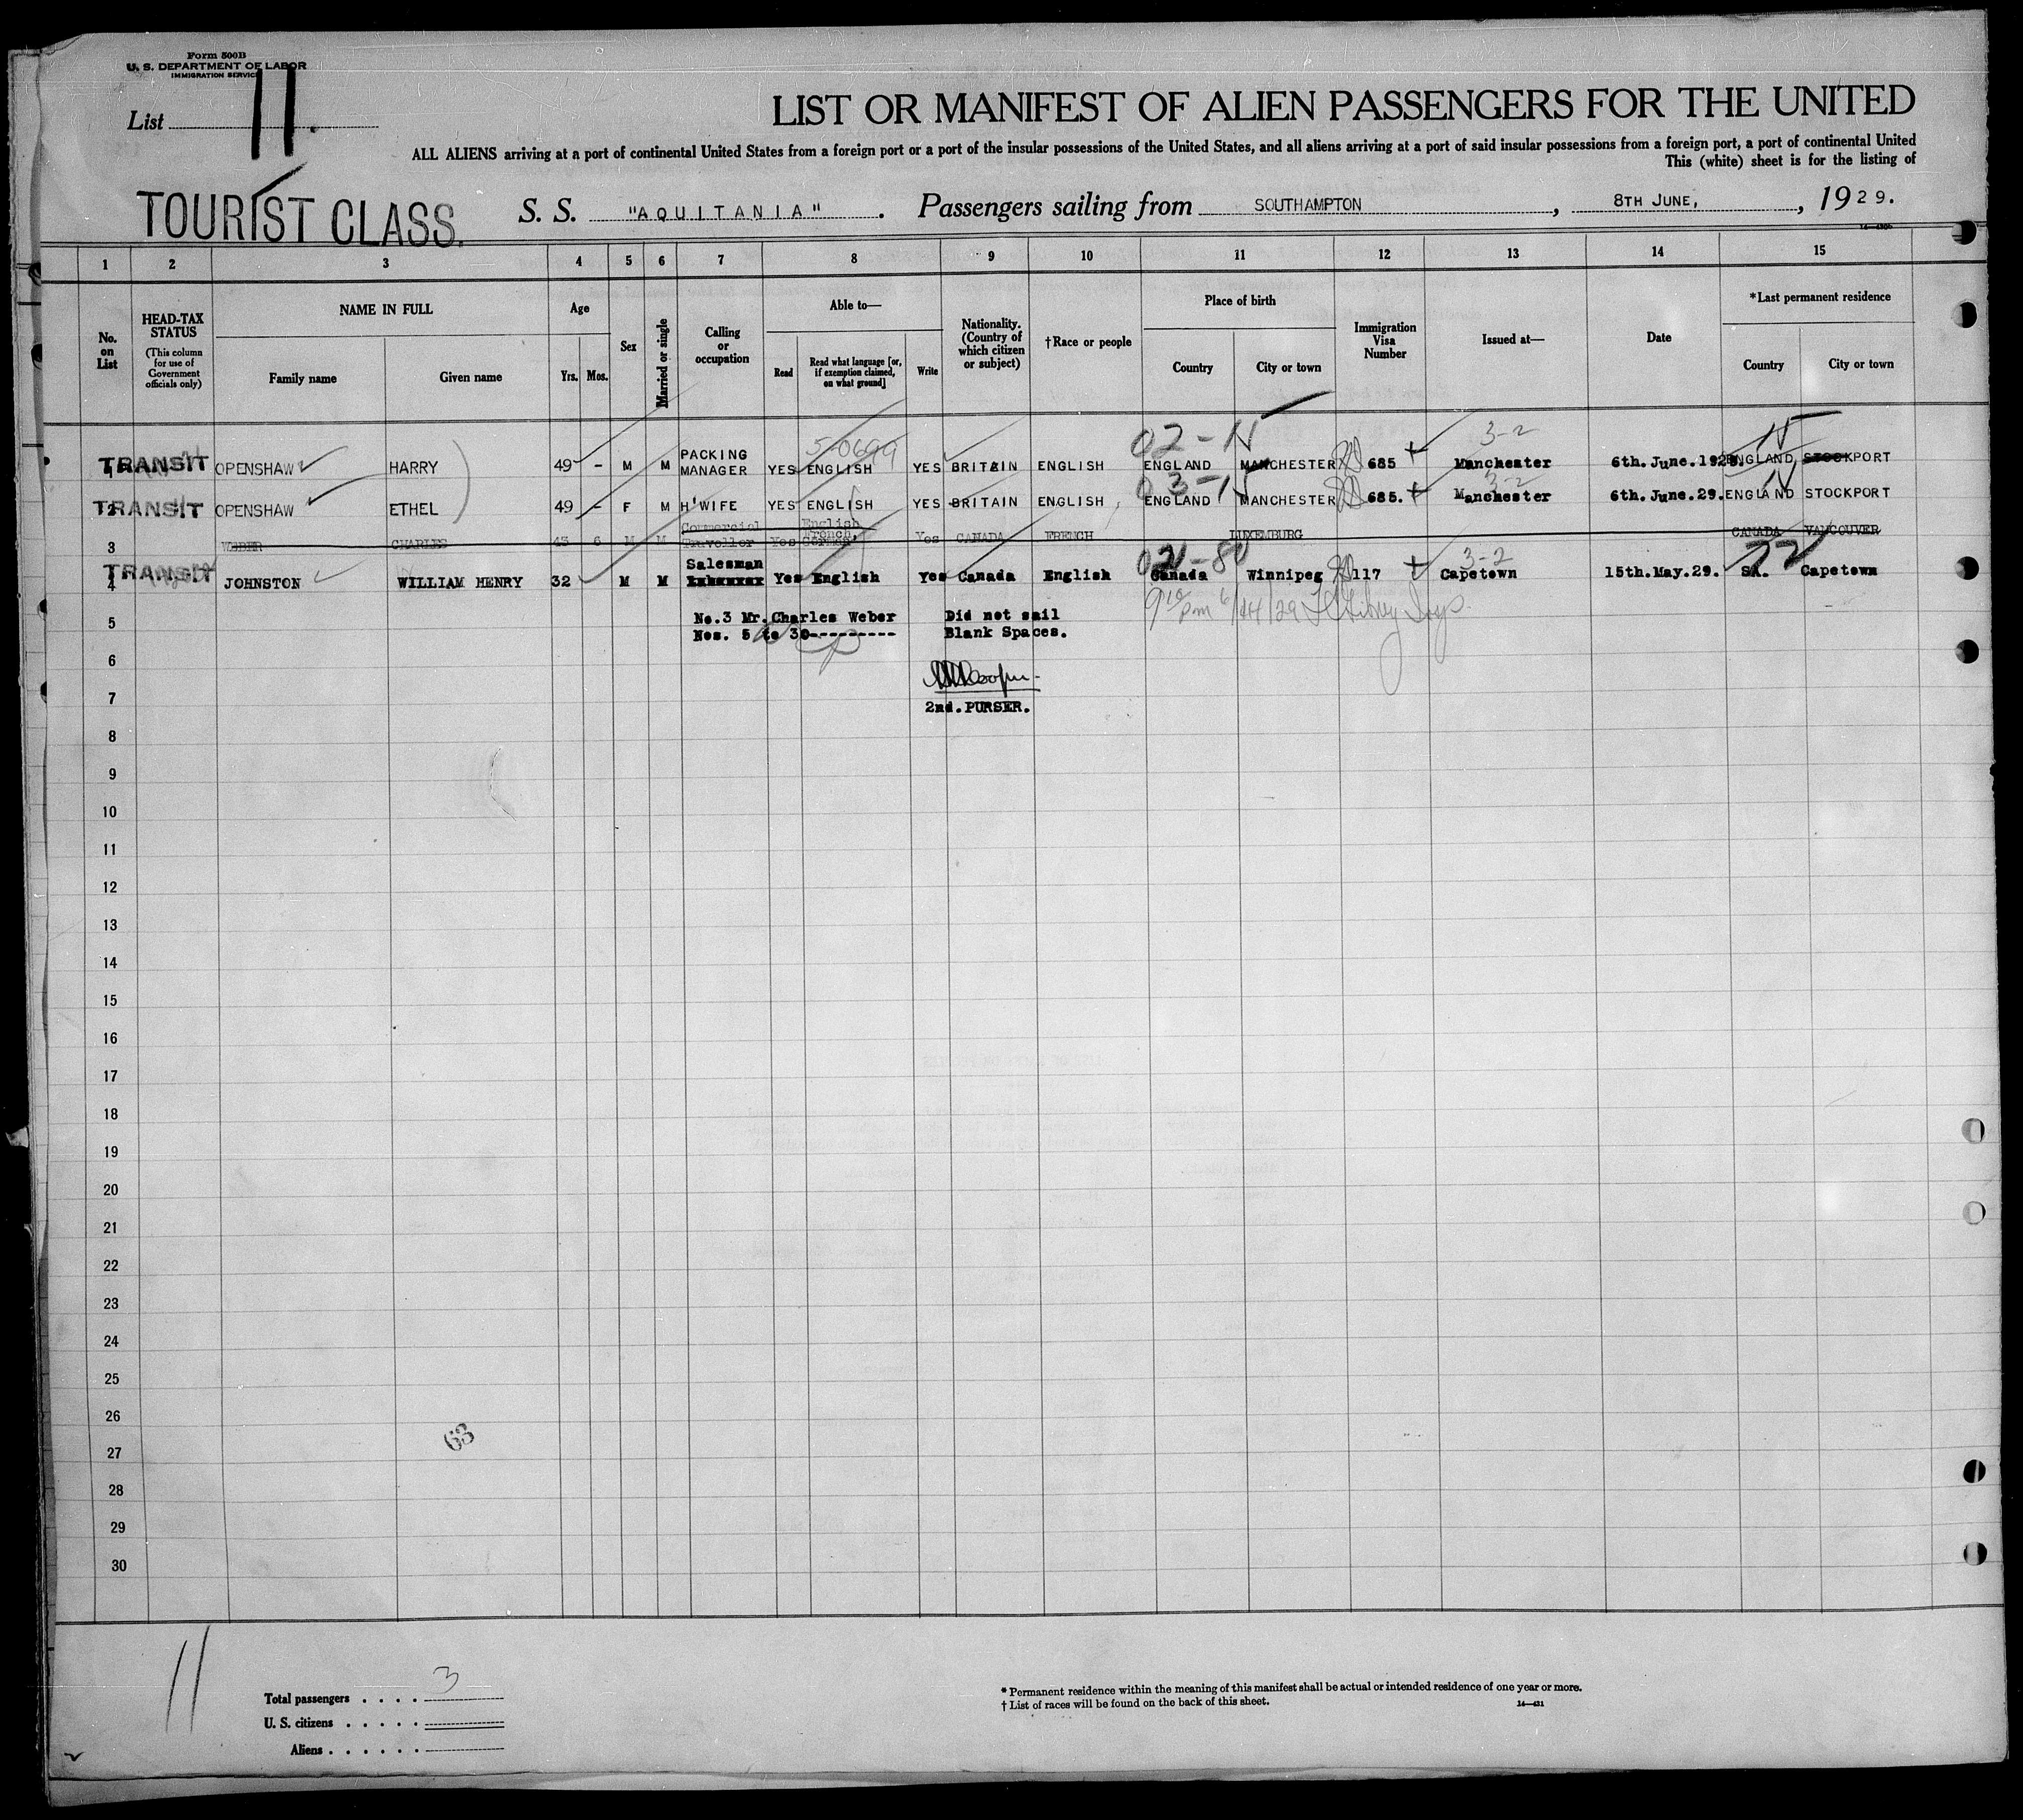 Form 500B
U. S. DEPARTMENT OF LABOR
IMMIGRATION SERVICE
List 11.
LIST OR MANIFEST OF ALIEN PASSENGERS FOR THE UNITED
ALL ALIENS arriving at a port of continental United States from a foreign port or a port of the insular possessions of the United States, and all aliens arriving at a port of said insular possessions from a foreign port, a port of continental United
This (white) sheet is for the listing of
TOURIST CLASS. S. S. "AQUITANIA". Passengers sailing from SOUTHAMPTON, 8TH JUNE, 1929.
1 2 3 4 5 6 7 8 9 10 11 12 13 14 15
No. on List
HEAD-TAX STATUS
(This column for use of Government officials only)
NAME IN FULL
Family name Given name
Age
Yrs. Mos.
Sex
Married or single
Calling or occupation
Able to—
Read Read what language [or, if exemption claimed, on what ground] Write
Nationality. (Country of which citizen or subject)
†Race or people
Place of birth
Country City or town
Immigration Visa Number
Issued at—
Date
*Last permanent residence
Country City or town
02-N 3-2 N
1 TRANSIT OPENSHAW HARRY 49 - M M PACKING MANAGER YES ENGLISH YES BRITAIN ENGLISH ENGLAND MANCHESTER 685 Manchester 6th. June. 1929. ENGLAND STOCKPORT
03-N 3-2 N
2 TRANSIT OPENSHAW ETHEL 49 - F M H'WIFE YES ENGLISH YES BRITAIN ENGLISH ENGLAND MANCHESTER 685. Manchester 6th. June. 29. ENGLAND STOCKPORT
3 WEBER CHARLES 43 6 M M Commercial Traveller Yes English French, German Yes CANADA FRENCH LUXEMBURG CANADA VANCOUVER
3-2 77
4 TRANSIT JOHNSTON WILLIAM HENRY 32 M M Salesman Yes English Yes Canada English Canada Winnipeg 117 Capetown 15th. May. 29. SA. Capetown
5 No.3 Mr. Charles Weber Did not sail
Nos. 5 to 30---------- Blank Spaces.
6
7 2nd. PURSER.
8
9
10
11
12
13
14
15
16
17
18
19
20
21
22
23
24
25
26
27
28
29
30
63
11
Total passengers . . . . 3
U. S. citizens . . . . .
Aliens . . . . . .
* Permanent residence within the meaning of this manifest shall be actual or intended residence of one year or more.
† List of races will be found on the back of this sheet.
14—431